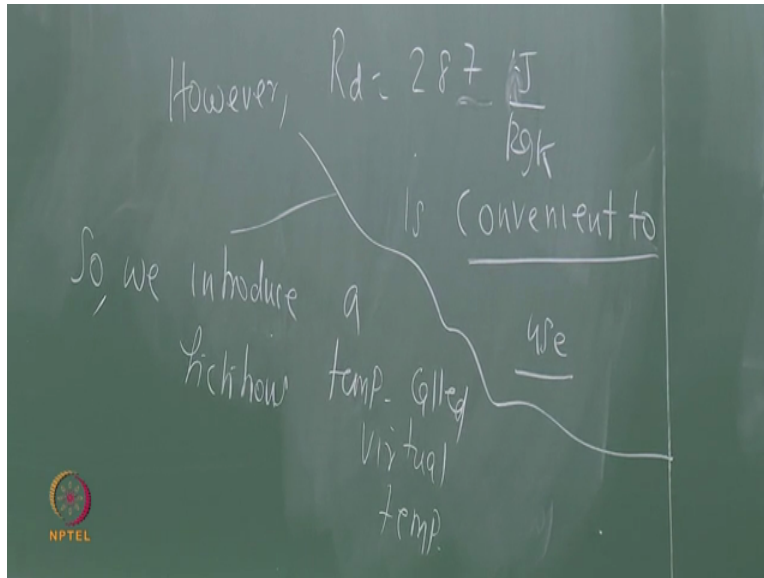 However, Rd = 287 J/kgK
is convenient to
use
So, we introduce a
fictitious temp. called
virtual
temp.
NPTEL